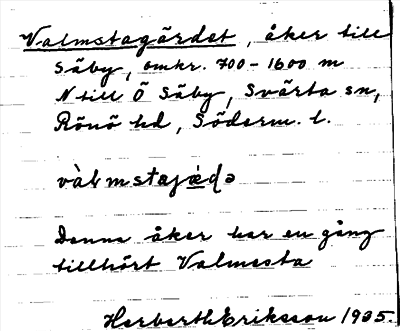 Valmstagärdet, åker till
Säby, omkr. 700-1600 m
N till Ö Säby, Svärta sn,
Rönö hd, Söderm. l.
vàlmstajǽḍə
Denna åker har en gång
tillhört Valmesta
Herbert Eriksson 1935.